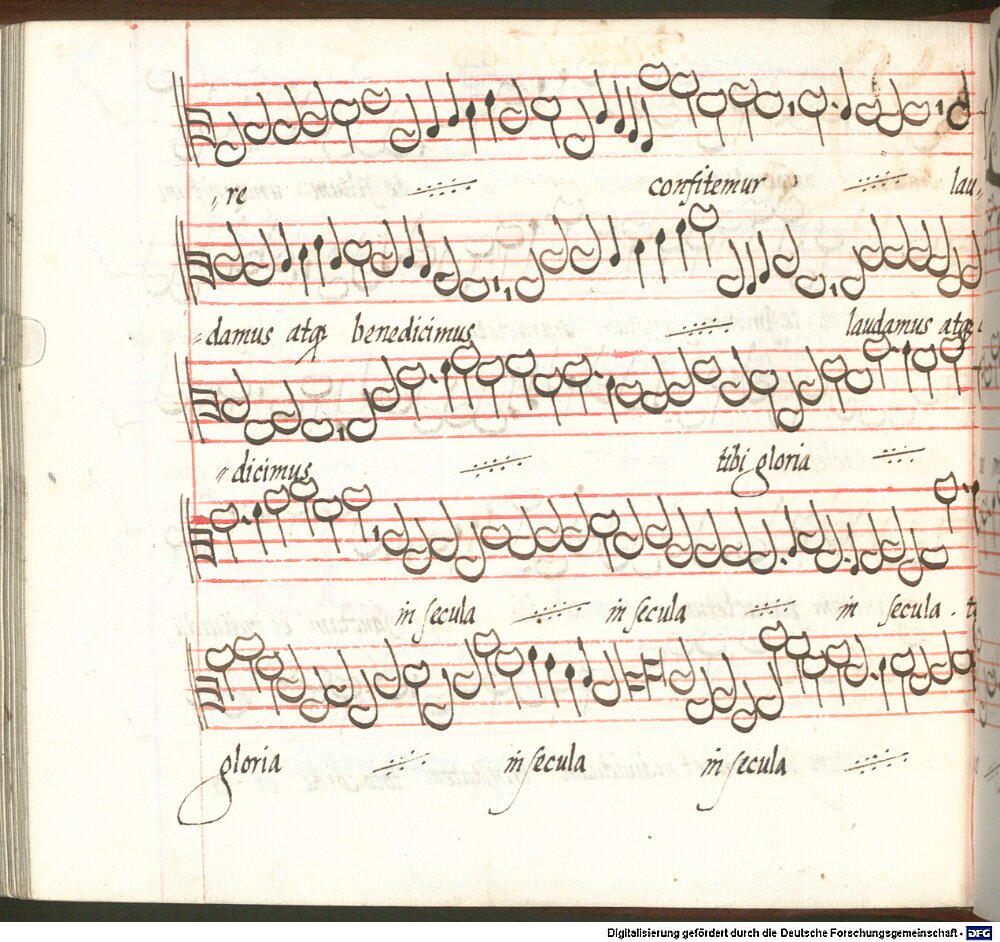 re confitemur lau-
damus atq; benedicimus laudamus atq;
dicimus tibi gloria
in secula in secula in secula .
gloria in secula in secula
Digitalisierung gefördert durch die Deutsche Forschungsgemeinschaft - DFG